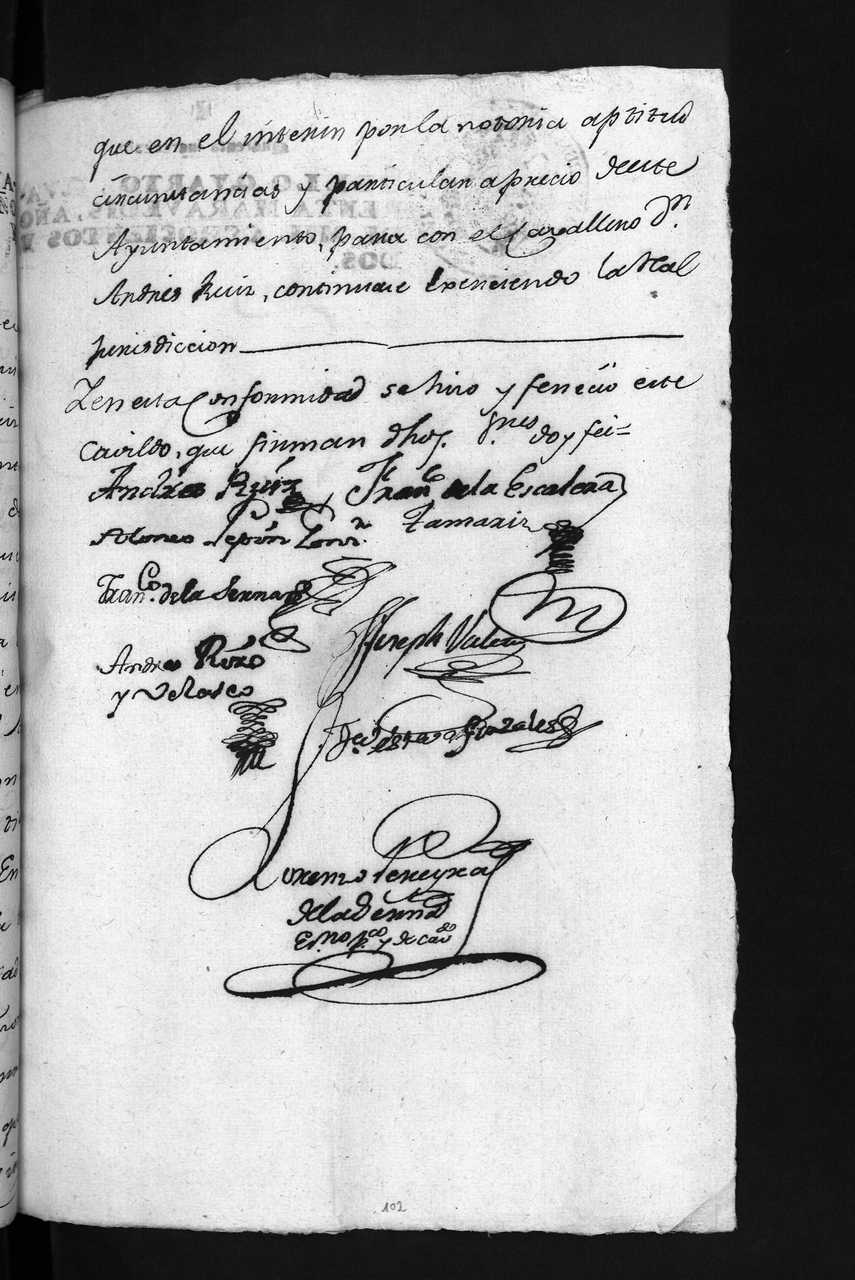 que en el interin por la notoria aptitud
circunstancias y particular aprecio de este
Ayuntamiento, para con el Cavallero Dn.
Andres Ruiz, continuase exerciendo la Real
jurisdiccion
Y en esta Conformidad se hizo y fenecio este
Cavildo, que firman dhos. Sres. doy fee=
Andres Ruiz Franco. de la Escalera
Tamariz
Alonso
Franco. de la Serna
Joseph
Andres Rozo
y Velasco
Gonzales
Lorenzo Pereyra
de la Serna
Esno. pco. y de Cavdo
102